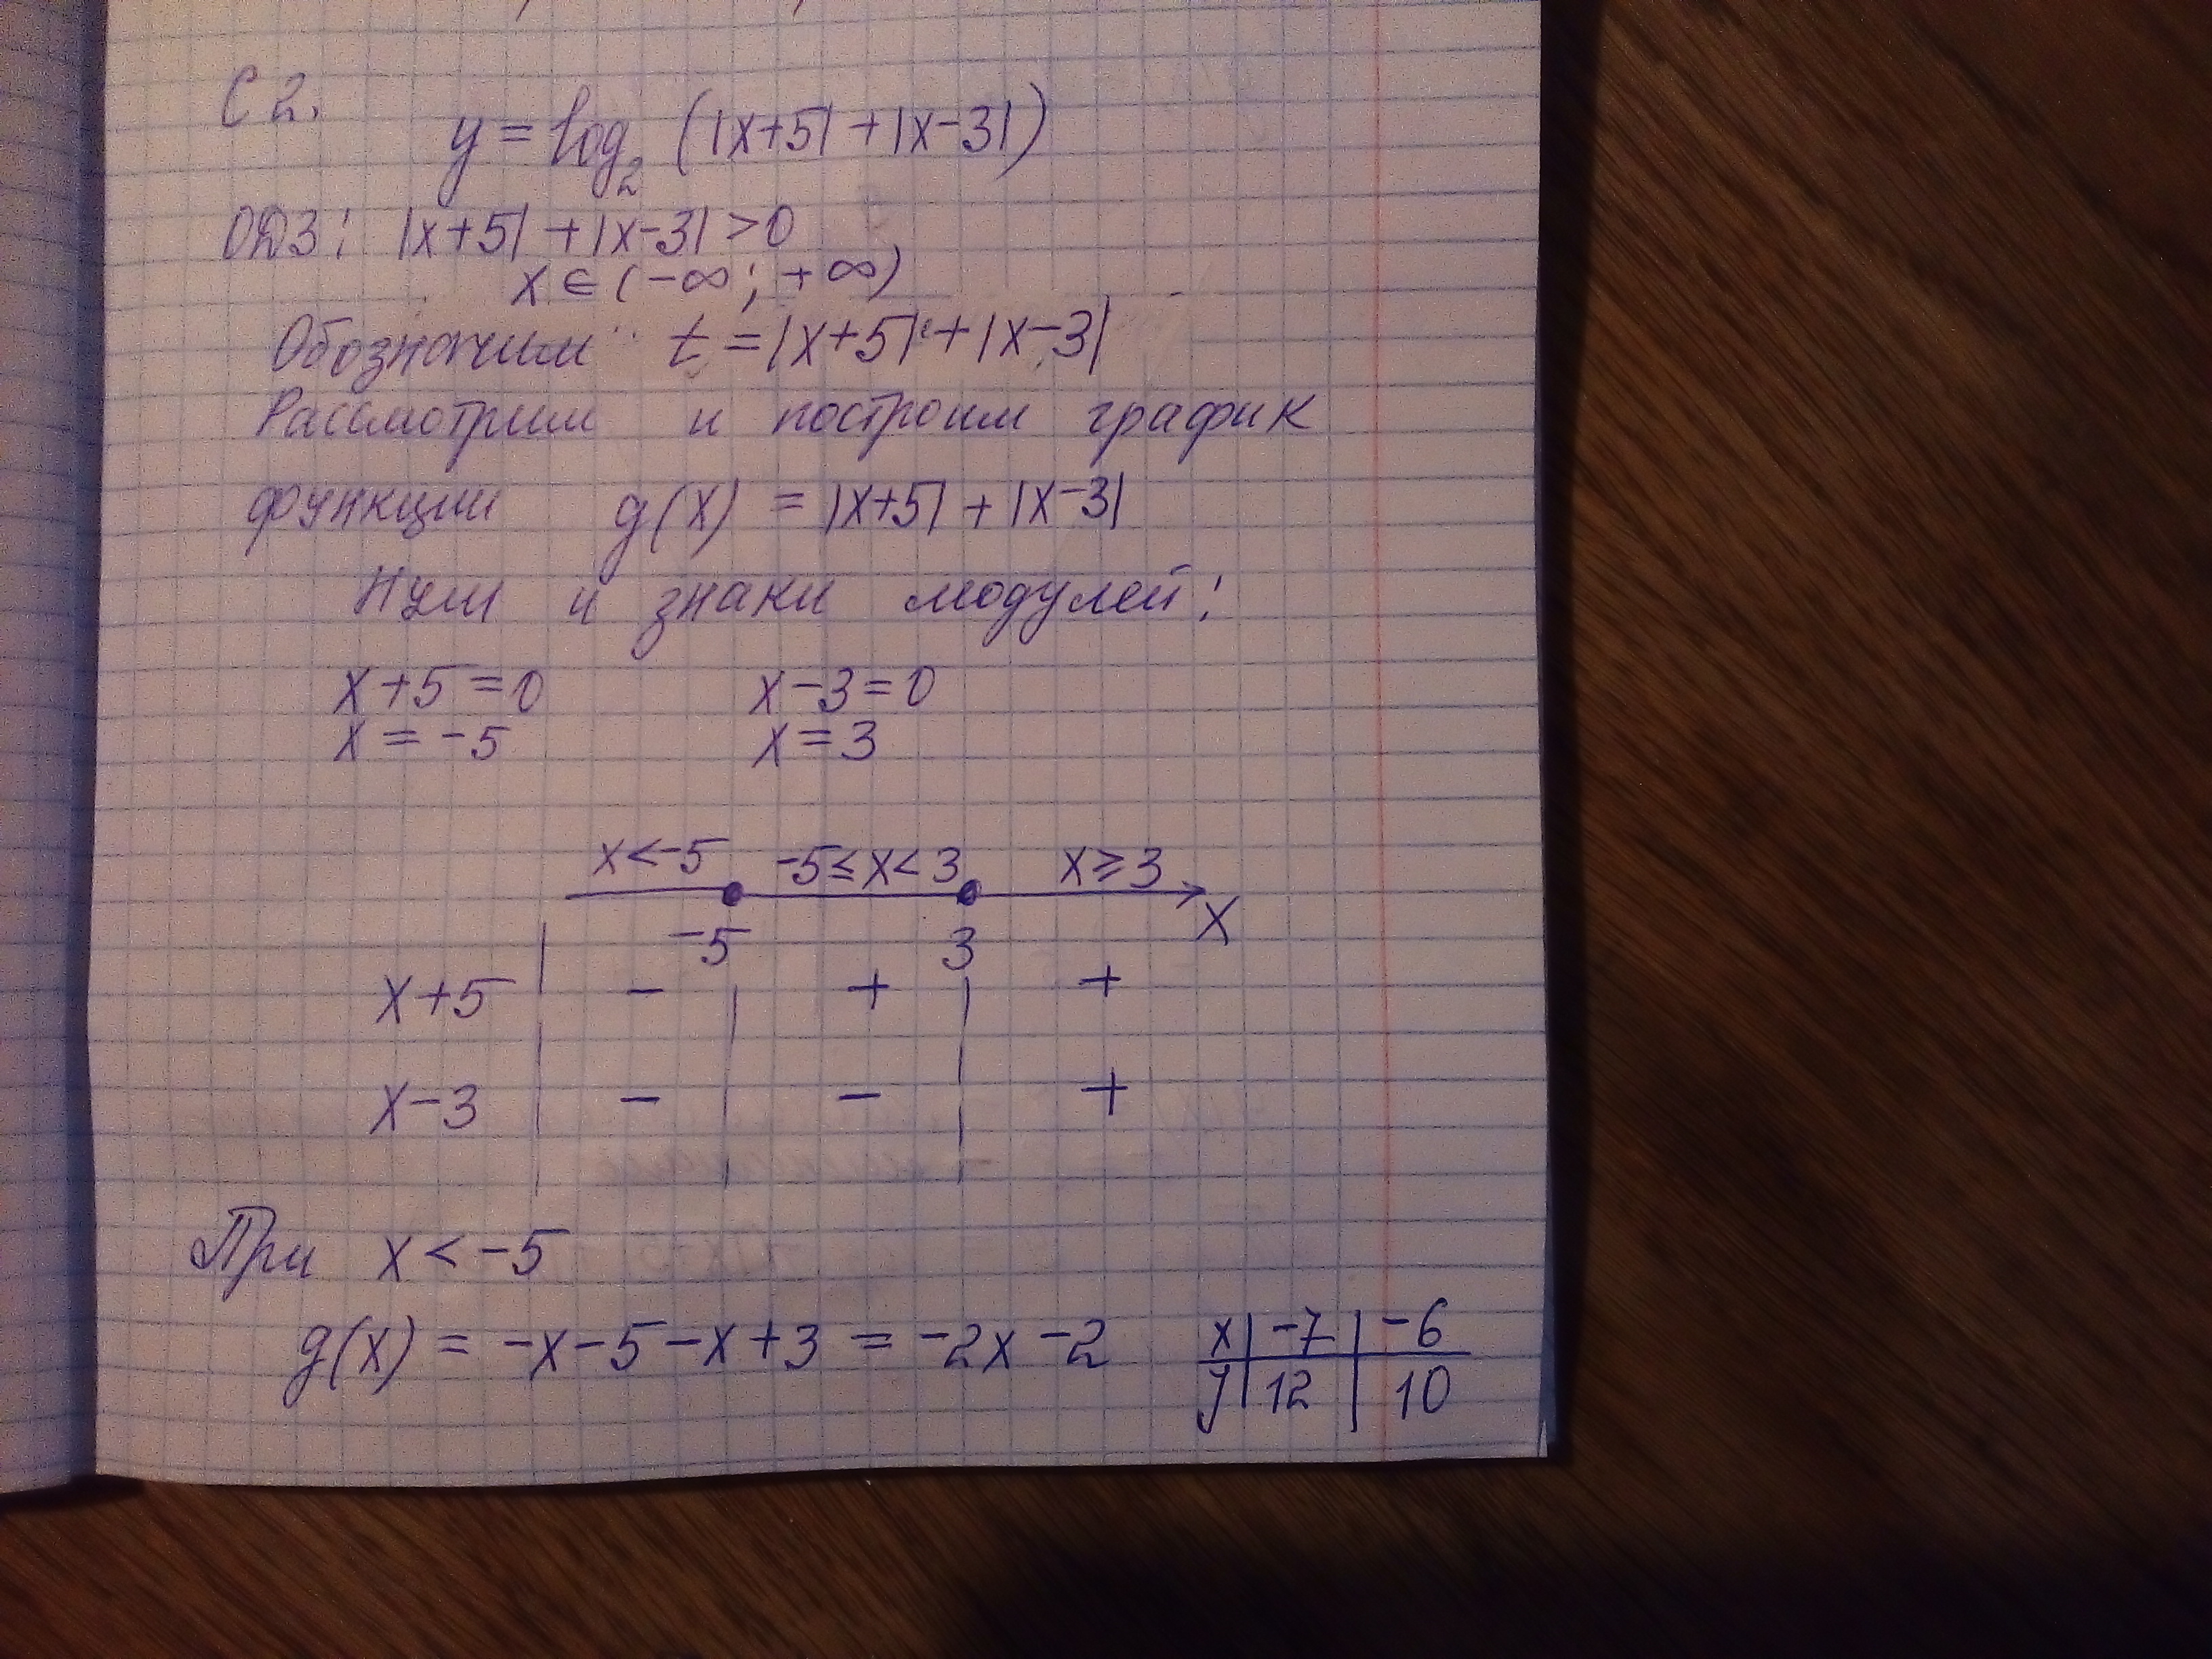 С 2.
y = log₂ (|x+5| + |x-3|)
ОДЗ: |x+5| + |x-3| > 0
x ∈ (-∞; +∞)
Обозначим t = |x+5| + |x-3|
Рассмотрим и построим график
функции g(x) = |x+5| + |x-3|
Нули и знаки модулей:
x+5=0 x-3=0
x = -5 x = 3
x<-5 -5≤x<3 x≥3
-5 3 x
x+5 - + +
x-3 - - +
При x < -5
g(x) = -x-5-x+3 = -2x-2
x -7 -6
y 12 10